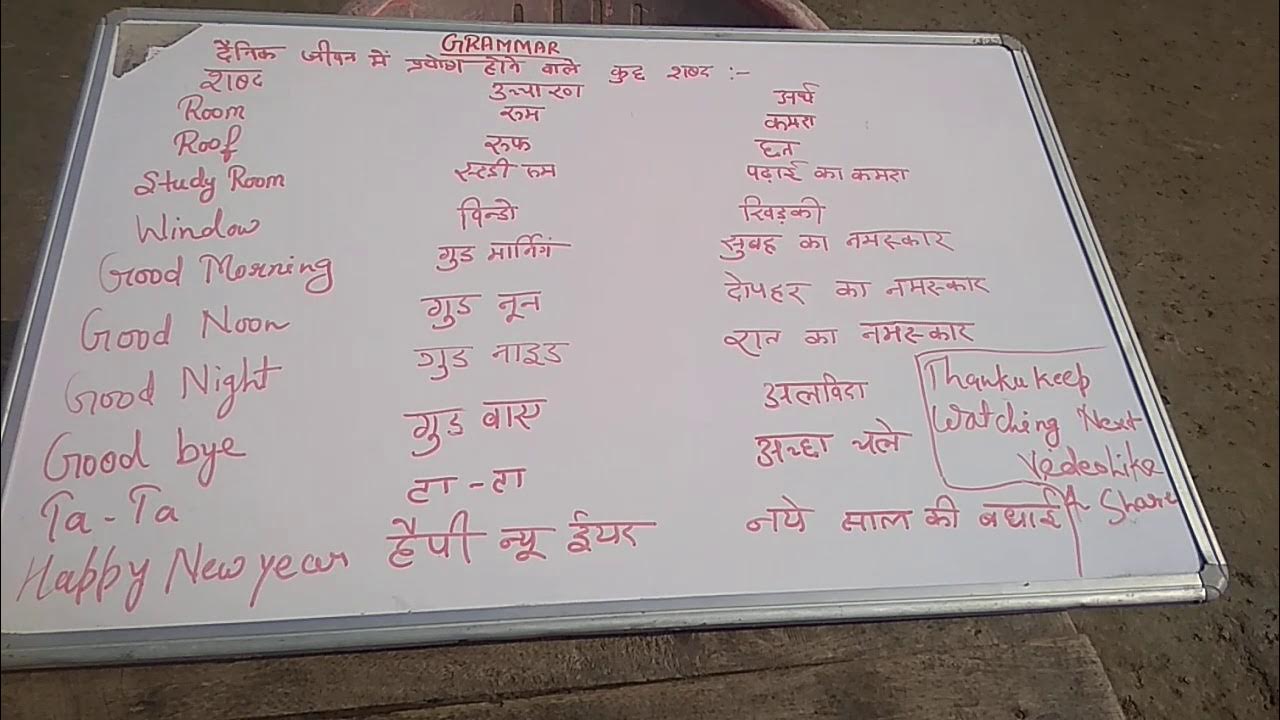 GRAMMAR
दैनिक जीवन में प्रयोग होने वाले कुछ शब्द :-
शब्द उच्चारण अर्थ
Room रुम कमरा
Roof रुफ छत
Study Room स्टडी रुम पढ़ाई का कमरा
Window विन्डो खिड़की
Good Morning गुड मार्निगं सुबह का नमस्कार
Good Noon गुड नून दोपहर का नमस्कार
Good Night गुड नाइड रात का नमस्कार
Good bye गुड वाए अलविदा
Ta-Ta टा-टा अच्छा चले
Happy New year हैपी न्यू ईयर नये साल की बधाई
Thanku keep
Watching Next
Vedeo Like
& Share